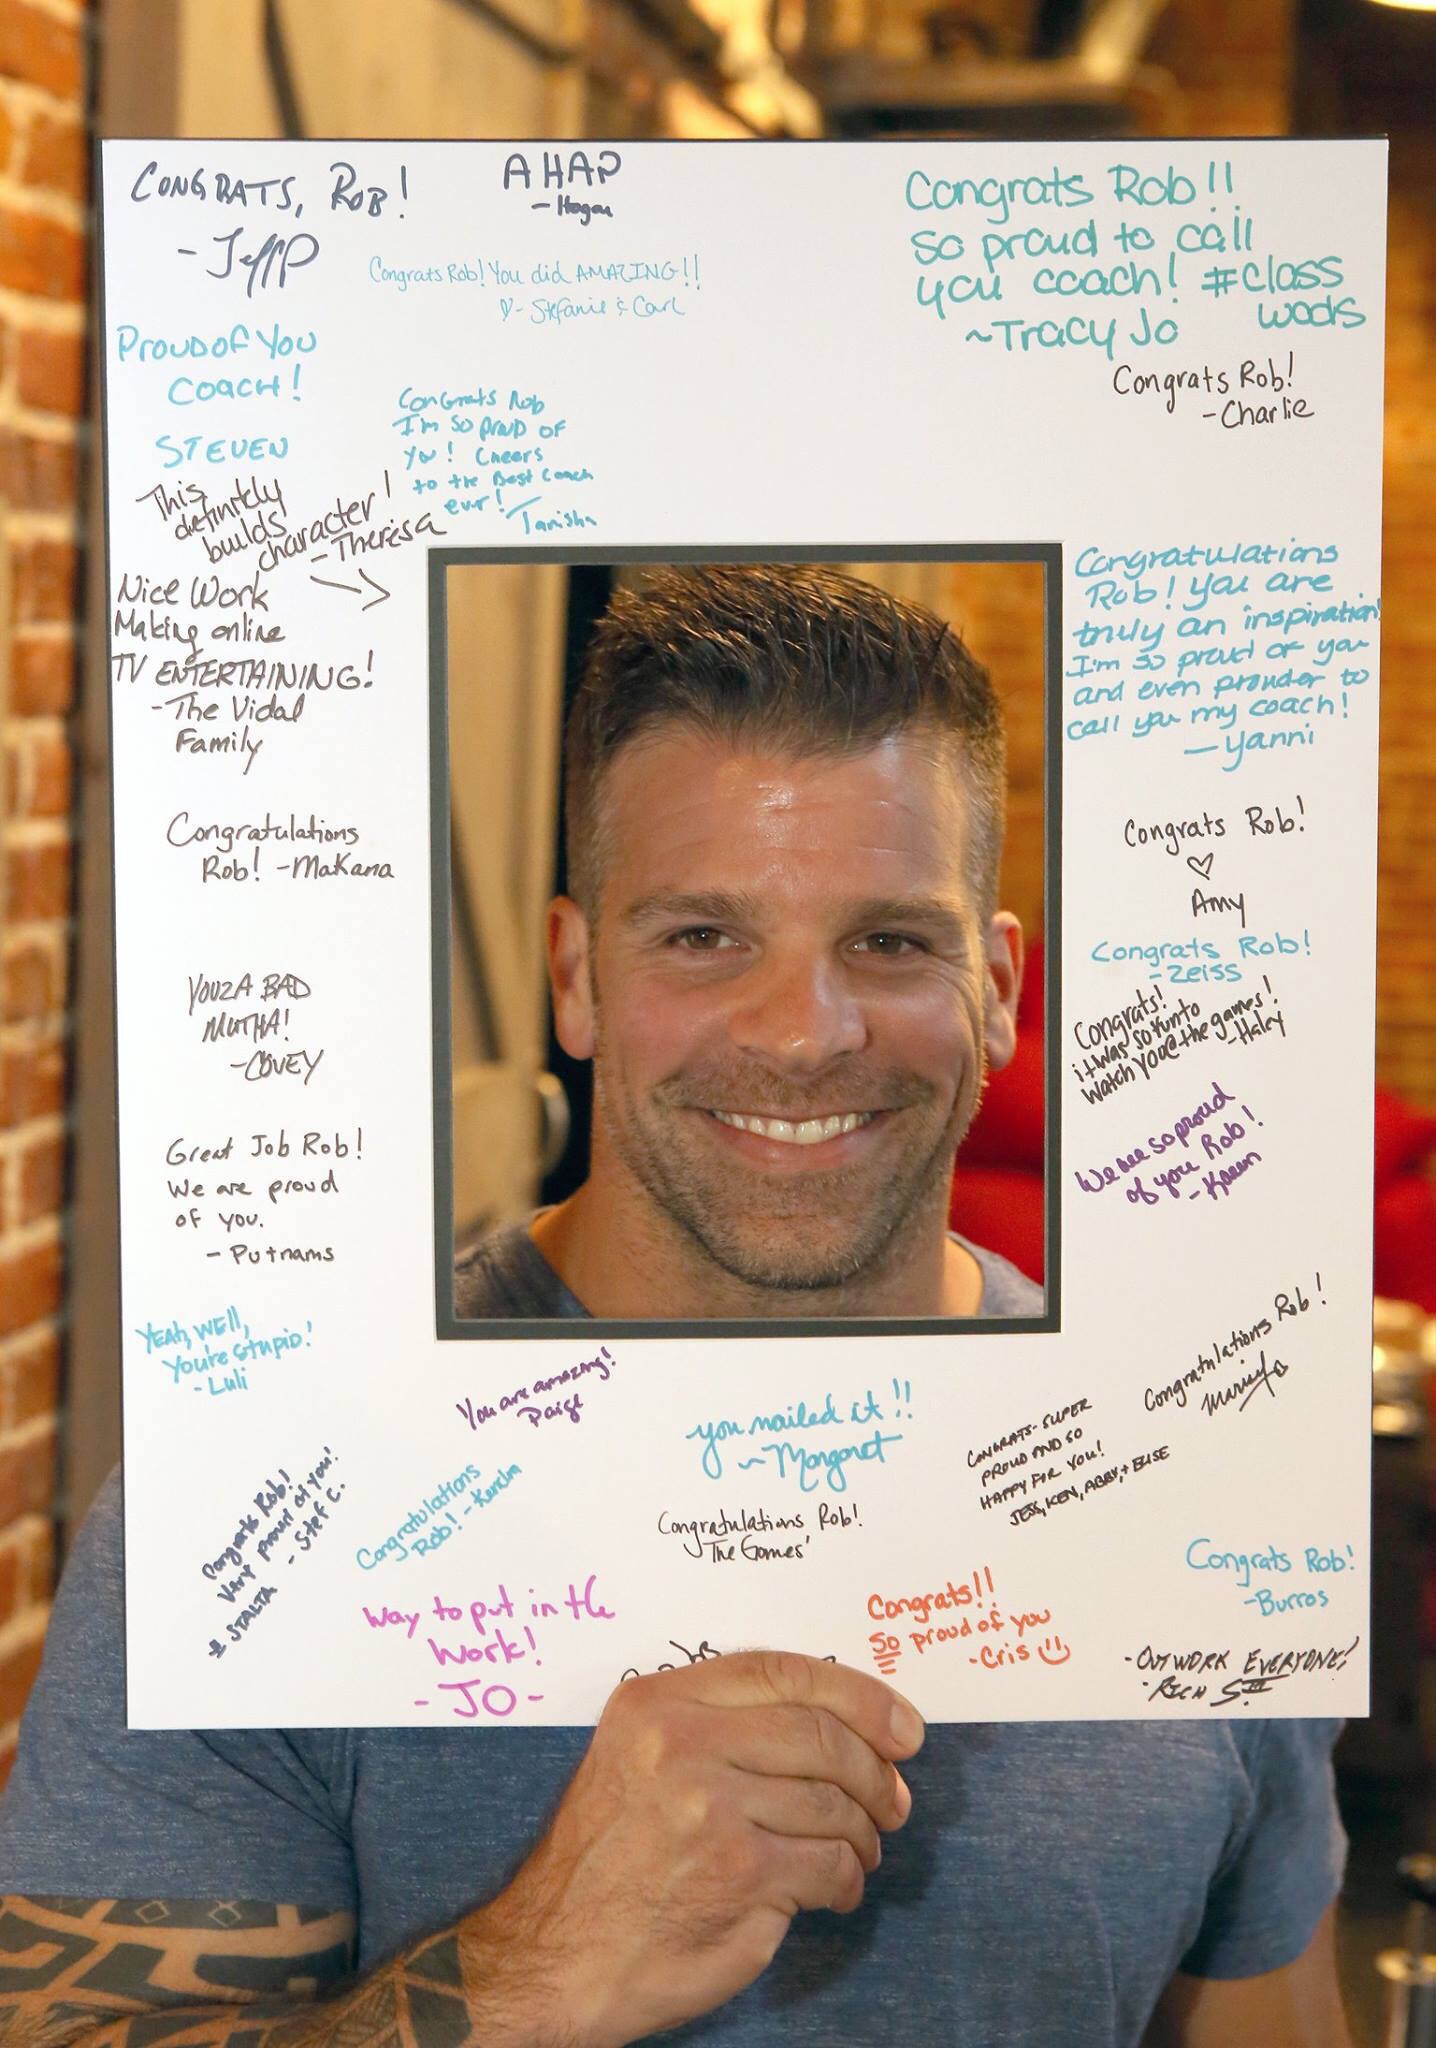 CONGRATS, ROB!
-Jeff P
AHAP
-Hogan
Congrats Rob! You did AMAZING!!
♡- Stefanie & Carl
Congrats Rob!!
so proud to call
you coach! #class
wods
~Tracy Jo
Congrats Rob!
-Charlie
PROUD OF YOU
COACH!
STEVEN
Congrats Rob
I'm so proud of
you! Cheers
to the Best Coach
ever!
Tanisha
This
definitely
builds
character!
-Theresa
Nice Work
Making online
TV ENTERTAINING!
-The Vidal
Family
Congratulations
Rob! You are
truly an inspiration!
I'm so proud of you
and even prouder to
call you my coach!
-Yanni
Congratulations
Rob! -Makana
Congrats Rob!
♡
Amy
Congrats Rob!
-Zeiss
YOUZA BAD
MUTHA!
-COVEY
Congrats!
it was so fun to
watch you@the games!
-Haley
Great Job Rob!
We are proud
of you.
- Putnams
We are so proud
of you Rob!
-Kreen
YEAH, WELL,
You're stupid!
-Luli
You are amazing!
Paige
you nailed it!!
~Margaret
Congratulations Rob!
CONGRATS-SUPER
PROUD AND SO
HAPPY FOR YOU!
JESS, KEN, ABBY, + ELISE
Congrats Rob!
Very proud of you!
- Stef C.
Congratulations
Rob! -Kendra
Congratulations Rob!
The Games'
Way to put in the
Work!
-JO-
Congrats!!
So proud of you
-Cris
Congrats Rob!
-Burros
-OUTWORK EVERYONE!
-RICH S. III